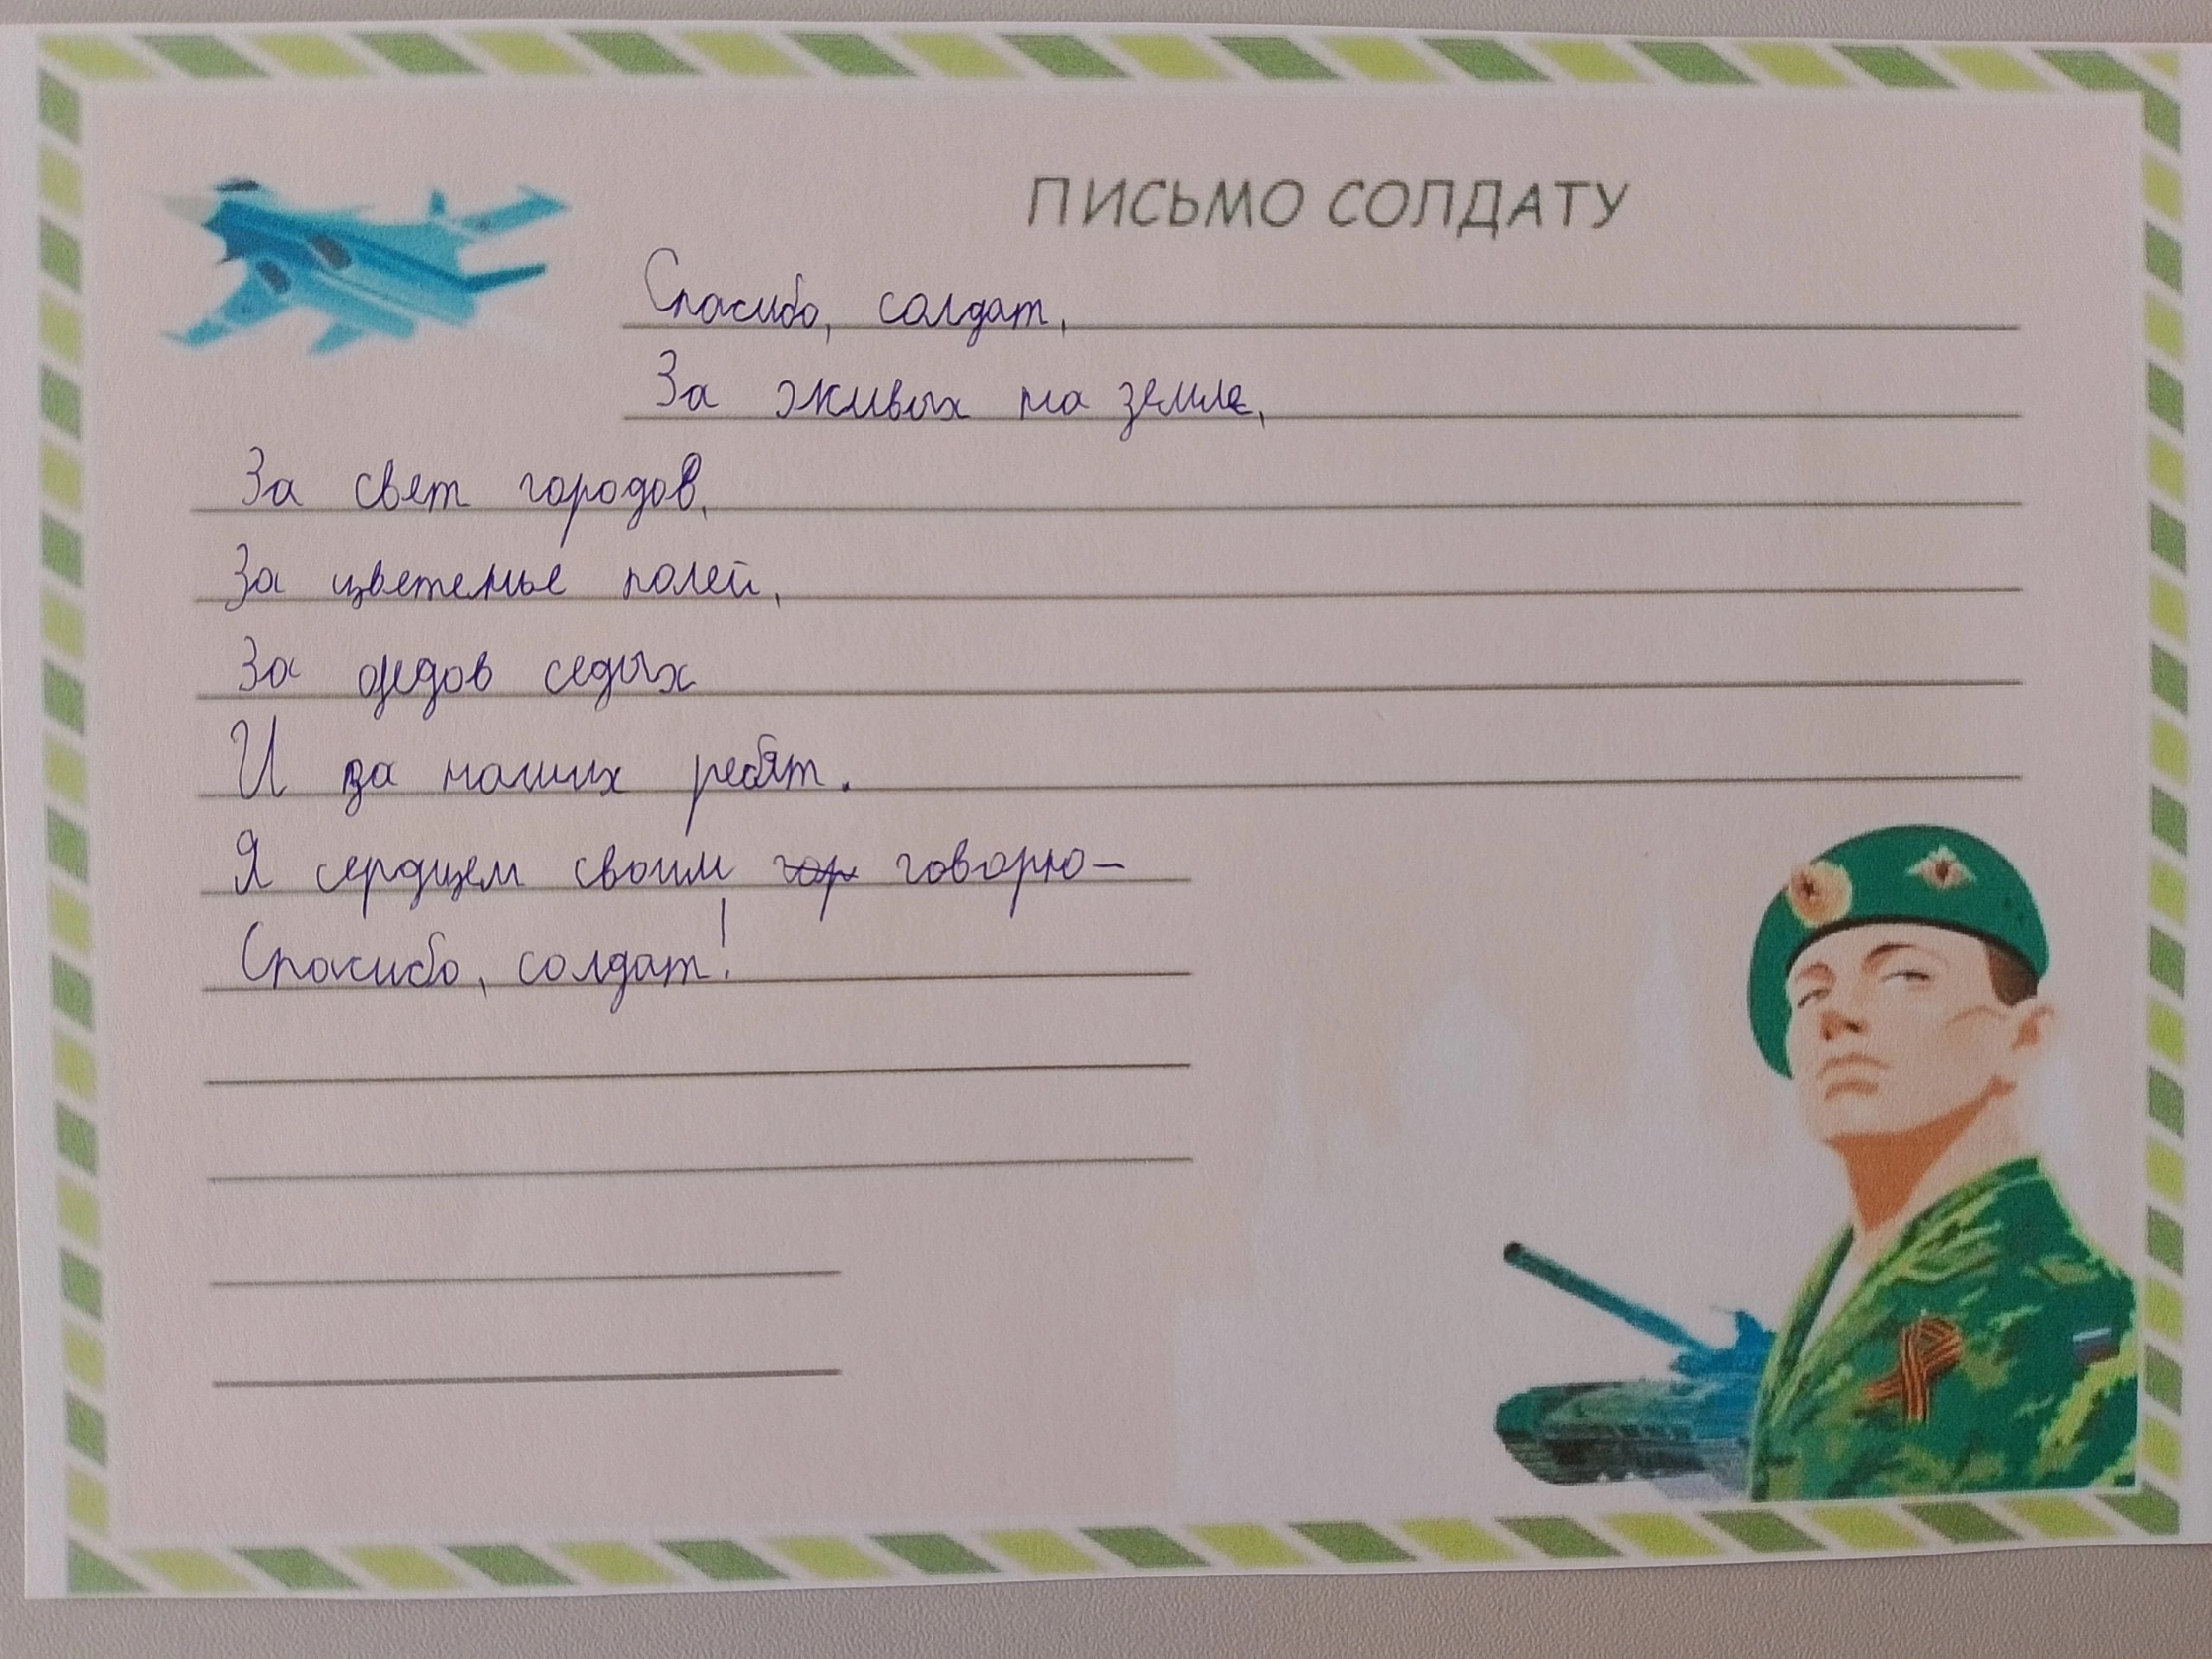 ПИСЬМО СОЛДАТУ
Спасибо, солдат,
За живых на земле,
За свет городов,
За цветенье полей,
За дедов седых
И за наших ребят.
Я сердцем своим гор говорю–
Спасибо, солдат!